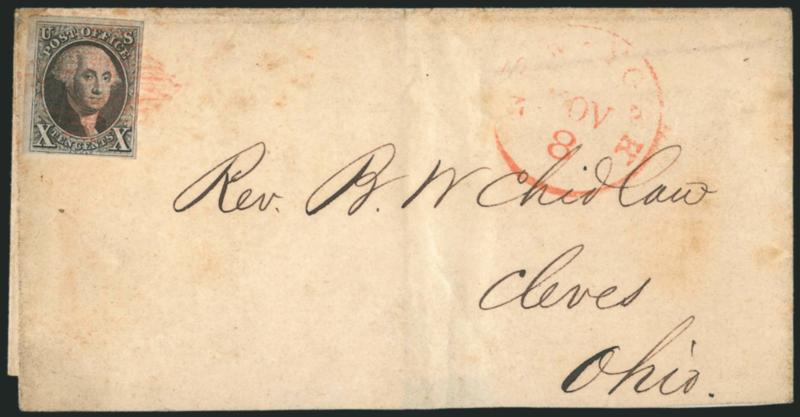 U S
POST OFFICE
X X
TEN CENTS
NOV
8
Rev. B. W Chidlaw
Cleves
Ohio.